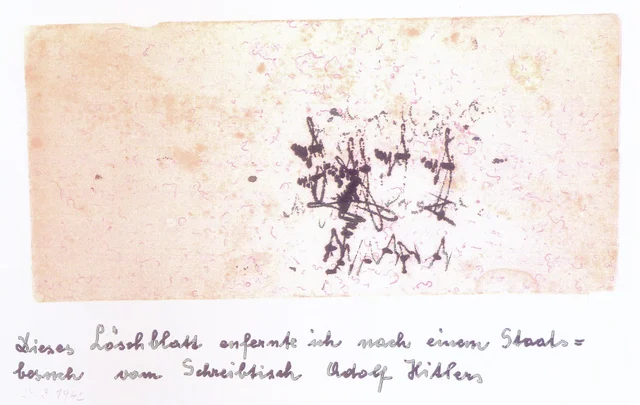 Dieses Löschblatt enfernte ich nach einem Staats=
besuch vom Schreibtisch Adolf Hitlers